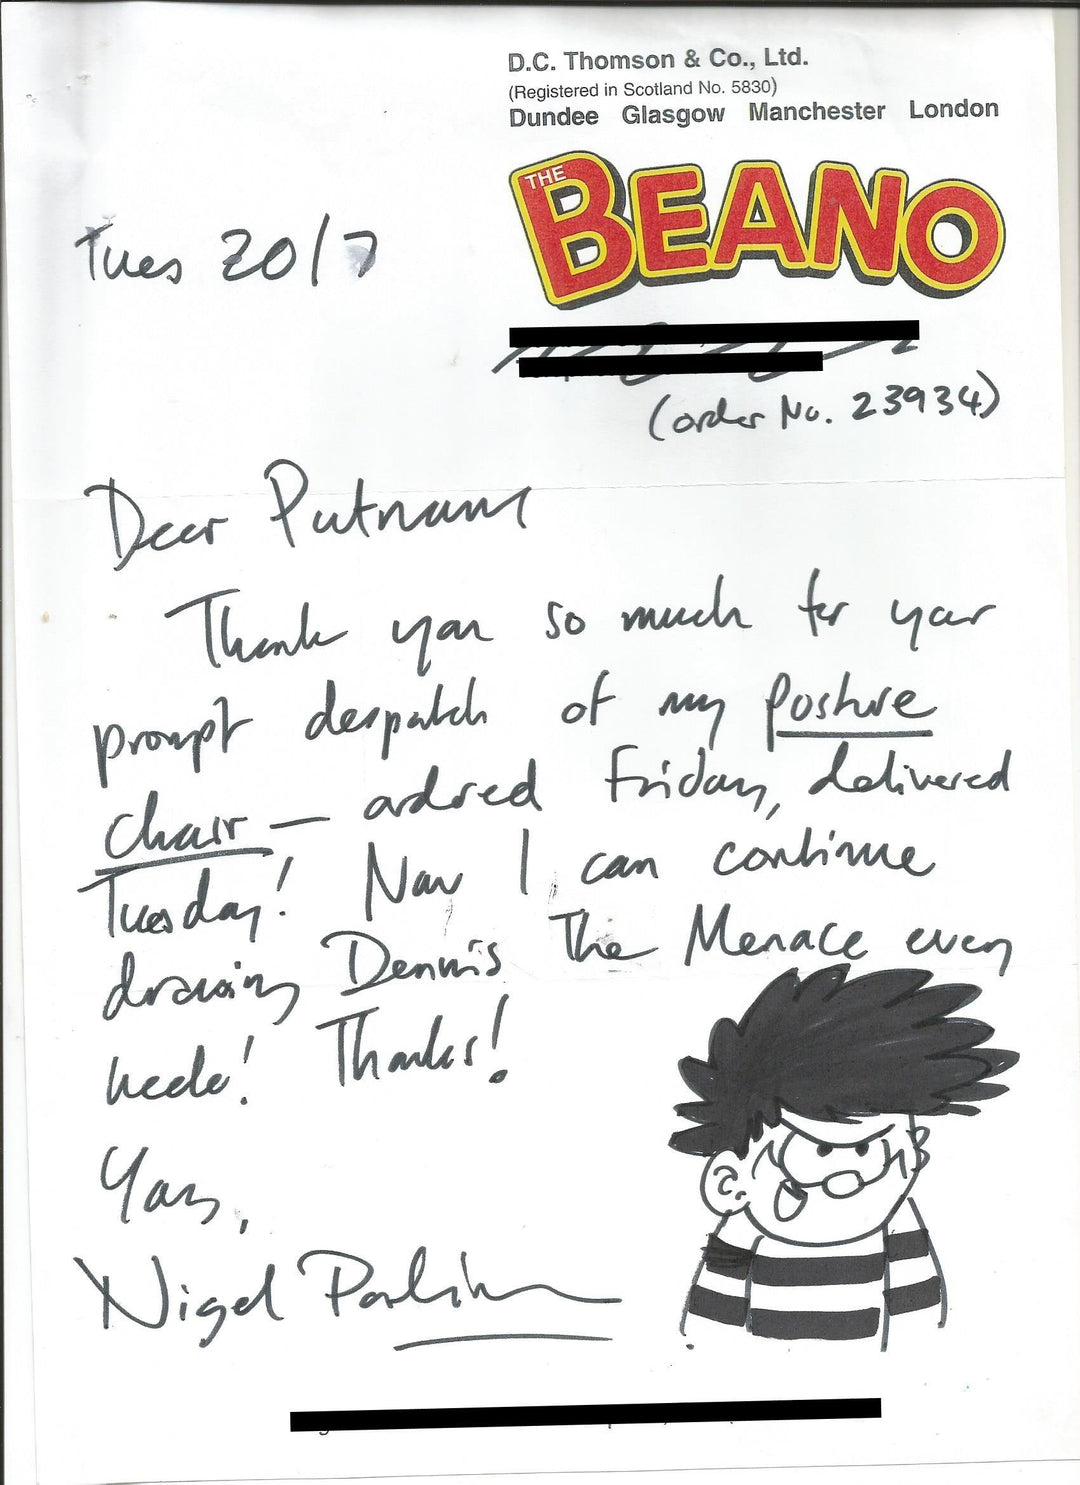 D.C. Thomson & Co., Ltd.
(Registered in Scotland No. 5830)
Dundee Glasgow Manchester London
THE BEANO
Tues 20/7
(order No. 23934)
Dear Putnams
Thank you so much for your
prompt despatch of my posture
chair — ordered Friday, delivered
Tuesday! Now I can continue
drawing Dennis The Menace every
week! Thanks!
Yours,
Nigel Parkinson